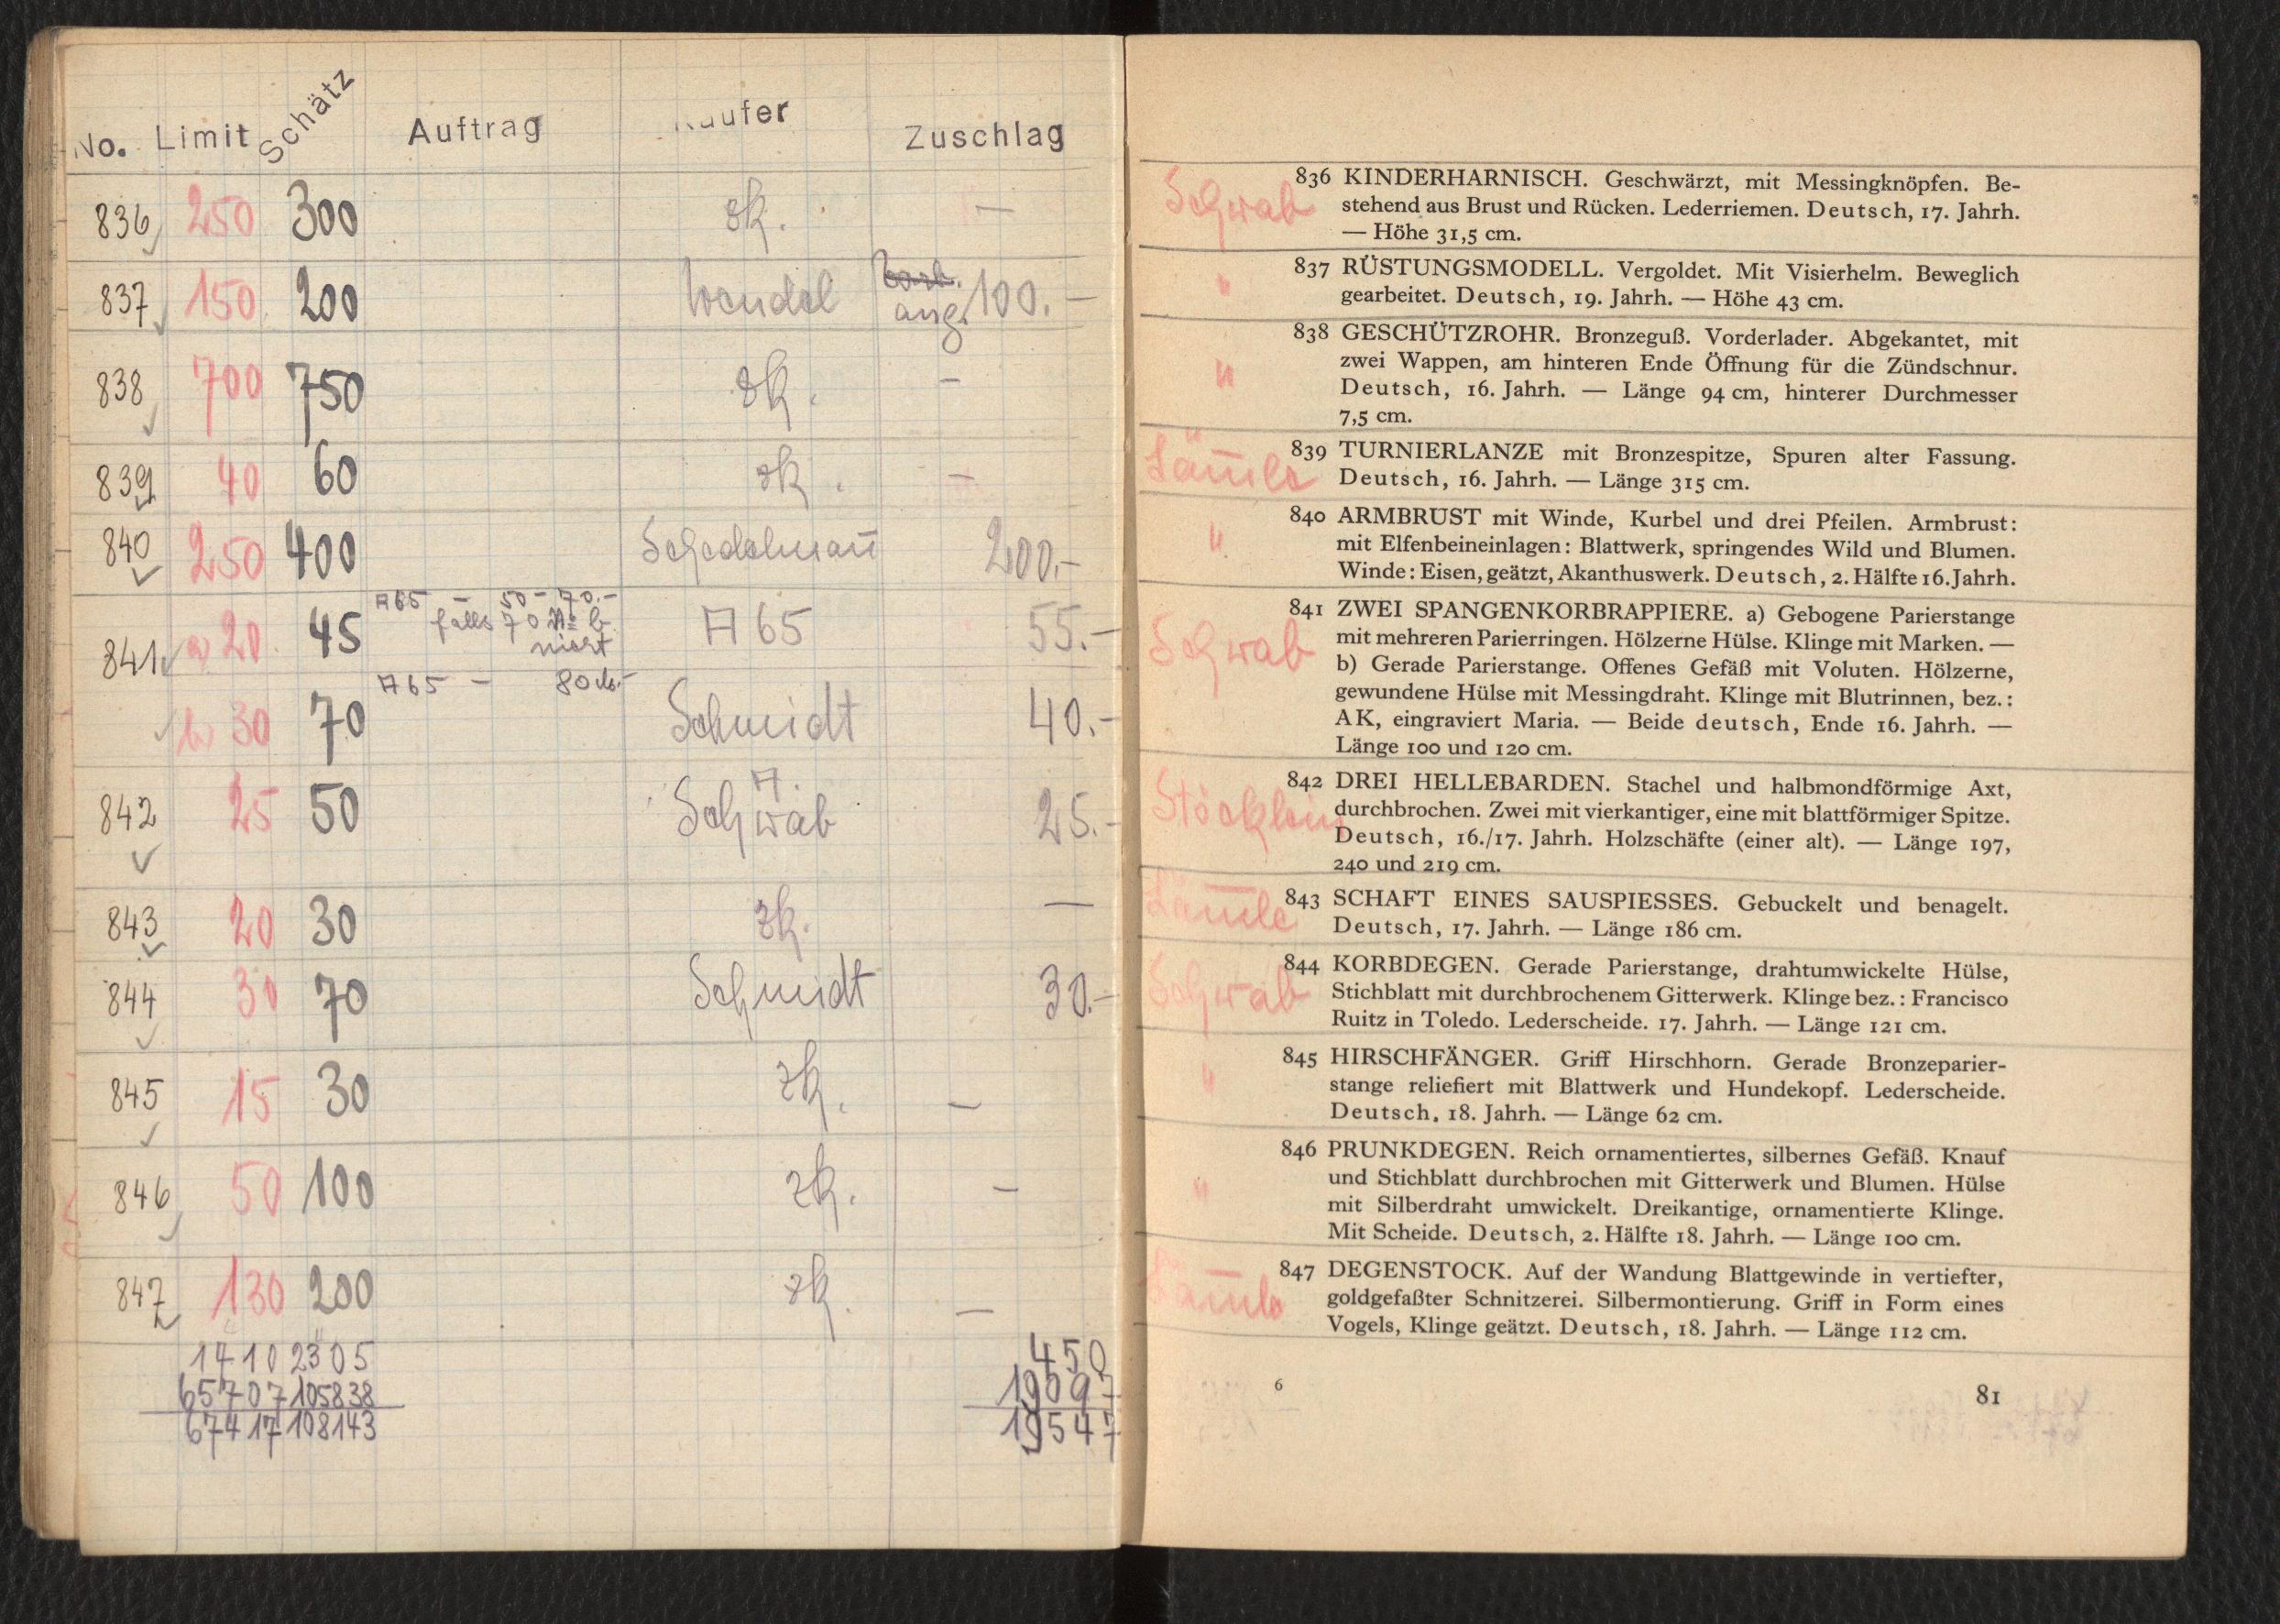 No. Limit Schätz Auftrag Käufer Zuschlag
836 250 300 zk. —
837 150 200 Wendel ang. 100.—
838 700 750 zk. —
839 40 60 zk. —
840 250 400 Schedelmann 200.-
A65 — 50-70.-
841 a) 20 45 falls 70 N= b nicht A 65 55.-
A65 — 80.-
b) 30 70 Schmidt 40.-
842 25 50 A. Schwab 25.-
843 20 30 zk. —
844 30 70 Schmidt 30.-
845 15 30 zk. —
846 50 100 zk. —
847 130 200 zk. —
1410 2305 450
65707 105838 19097
67417 108143 19547
Schwab
836 KINDERHARNISCH. Geschwärzt, mit Messingknöpfen. Be-
stehend aus Brust und Rücken. Lederriemen. Deutsch, 17. Jahrh.
— Höhe 31,5 cm.
"
837 RÜSTUNGSMODELL. Vergoldet. Mit Visierhelm. Beweglich
gearbeitet. Deutsch, 19. Jahrh. — Höhe 43 cm.
"
838 GESCHÜTZROHR. Bronzeguß. Vorderlader. Abgekantet, mit
zwei Wappen, am hinteren Ende Öffnung für die Zündschnur.
Deutsch, 16. Jahrh. — Länge 94 cm, hinterer Durchmesser
7,5 cm.
839 TURNIERLANZE mit Bronzespitze, Spuren alter Fassung.
Deutsch, 16. Jahrh. — Länge 315 cm.
"
840 ARMBRUST mit Winde, Kurbel und drei Pfeilen. Armbrust:
mit Elfenbeineinlagen: Blattwerk, springendes Wild und Blumen.
Winde: Eisen, geätzt, Akanthuswerk. Deutsch, 2. Hälfte 16. Jahrh.
Schwab
841 ZWEI SPANGENKORBRAPPIERE. a) Gebogene Parierstange
mit mehreren Parierringen. Hölzerne Hülse. Klinge mit Marken. —
b) Gerade Parierstange. Offenes Gefäß mit Voluten. Hölzerne,
gewundene Hülse mit Messingdraht. Klinge mit Blutrinnen, bez.:
AK, eingraviert Maria. — Beide deutsch, Ende 16. Jahrh. —
Länge 100 und 120 cm.
Stöcklein
842 DREI HELLEBARDEN. Stachel und halbmondförmige Axt,
durchbrochen. Zwei mit vierkantiger, eine mit blattförmiger Spitze.
Deutsch, 16./17. Jahrh. Holzschäfte (einer alt). — Länge 197,
240 und 219 cm.
843 SCHAFT EINES SAUSPIESSES. Gebuckelt und benagelt.
Deutsch, 17. Jahrh. — Länge 186 cm.
Schwab
844 KORBDEGEN. Gerade Parierstange, drahtumwickelte Hülse,
Stichblatt mit durchbrochenem Gitterwerk. Klinge bez.: Francisco
Ruitz in Toledo. Lederscheide. 17. Jahrh. — Länge 121 cm.
"
845 HIRSCHFÄNGER. Griff Hirschhorn. Gerade Bronzeparier-
stange reliefiert mit Blattwerk und Hundekopf. Lederscheide.
Deutsch, 18. Jahrh. — Länge 62 cm.
"
846 PRUNKDEGEN. Reich ornamentiertes, silbernes Gefäß. Knauf
und Stichblatt durchbrochen mit Gitterwerk und Blumen. Hülse
mit Silberdraht umwickelt. Dreikantige, ornamentierte Klinge.
Mit Scheide. Deutsch, 2. Hälfte 18. Jahrh. — Länge 100 cm.
847 DEGENSTOCK. Auf der Wandung Blattgewinde in vertiefter,
goldgefaßter Schnitzerei. Silbermontierung. Griff in Form eines
Vogels, Klinge geätzt. Deutsch, 18. Jahrh. — Länge 112 cm.
6 81